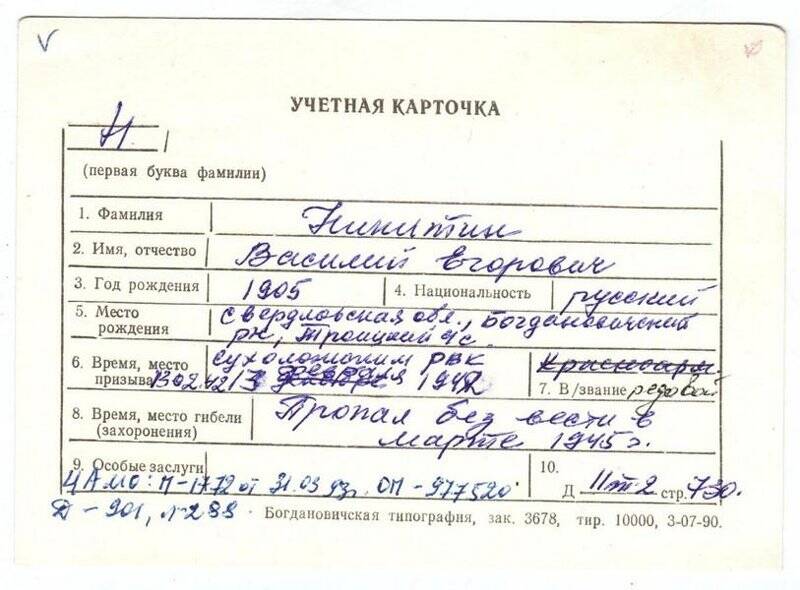 V
УЧЕТНАЯ КАРТОЧКА
Н.
(первая буква фамилии)
1. Фамилия Никитин
2. Имя, отчество Василий Егорович
3. Год рождения 1905 4. Национальность русский
5. Место рождения Свердловская обл., Богдановичский
рн, Троицкий с/с.
6. Время, место призыва сухоложским РВК
13 02.42 1942
Красноарм.
7. В/звание редовой
8. Время, место гибели (захоронения) Пропал без вести в
марте 1945 г.
9. Особые заслуги
ЦАМО: П-1772 от 31.03 93г. ОП-977520.
Д-901, л-299
10.
Д II т-2 стр. 730.
Богдановичская типография, зак. 3678, тир. 10000, 3-07-90.